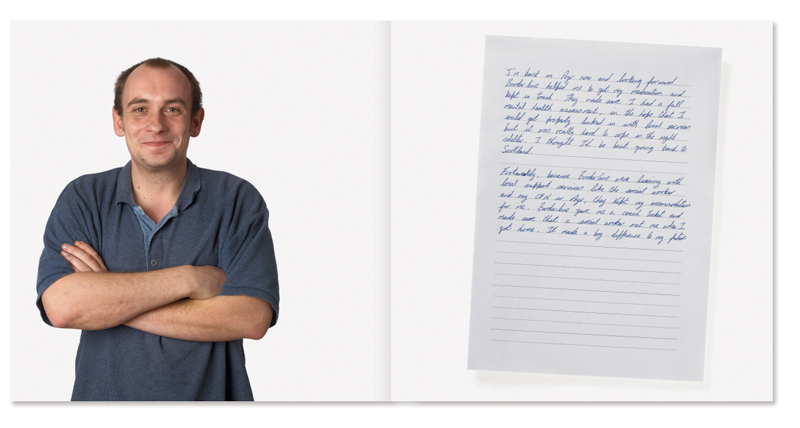 I'm back in Ayr now and looking forward.
Borderline helped me to get my medication and
kept in touch. They made sure I had a full
mental health assessment, in the hope that I
would get properly linked in with local services
but it was really hard to cope in the night
shelter. I thought I'd be best going back to
Scotland.
Fortunately, because Borderline were liaising with
local support services like the social worker
and my CPN in Ayr, they kept my accommodation
for me. Borderline gave me a coach ticket and
made sure that a social worker met me when I
got home. It made a big difference to my future